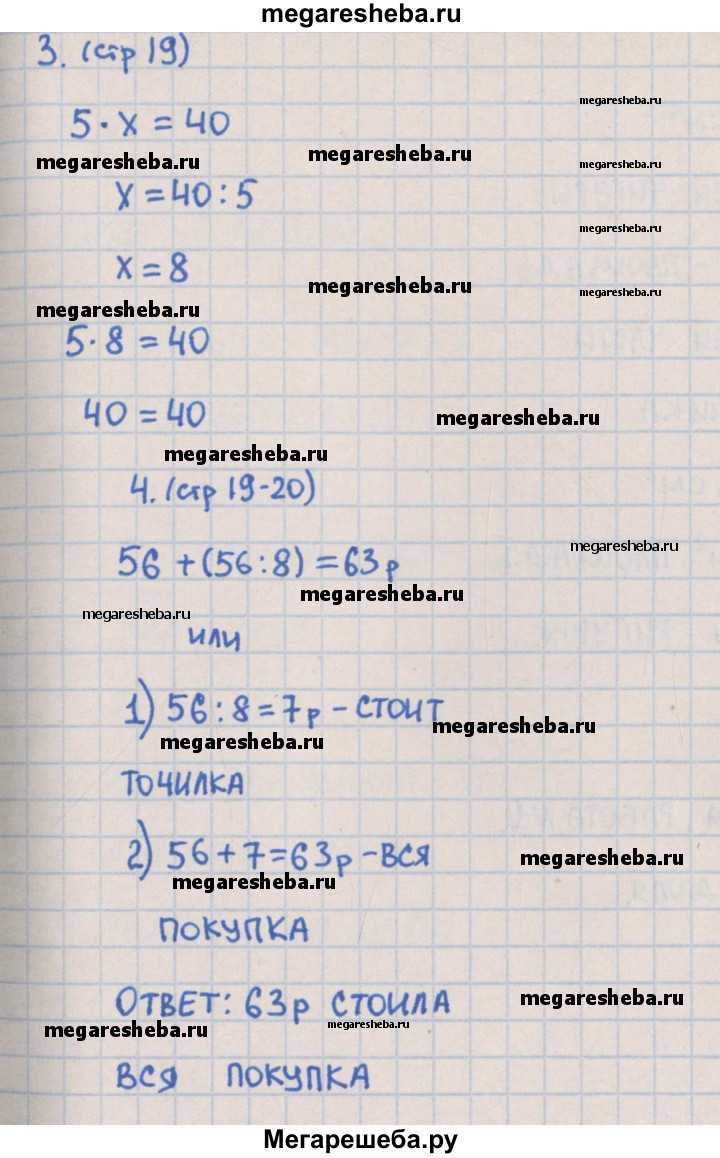 megaresheba.ru
3. (стр 19)
megaresheba.ru
5 · x = 40
megaresheba.ru
megaresheba.ru
megaresheba.ru
x = 40 : 5
megaresheba.ru
x = 8
megaresheba.ru
megaresheba.ru
megaresheba.ru
5 · 8 = 40
40 = 40
megaresheba.ru
megaresheba.ru
4. (стр 19-20)
megaresheba.ru
56 + (56 : 8) = 63 р
megaresheba.ru
megaresheba.ru
или
1) 56 : 8 = 7 р - стоит
megaresheba.ru
megaresheba.ru
точилка
2) 56 + 7 = 63 р - вся
megaresheba.ru
megaresheba.ru
покупка
Ответ: 63 р стоила
megaresheba.ru
megaresheba.ru
megaresheba.ru
вся покупка
Мегарешеба.ру